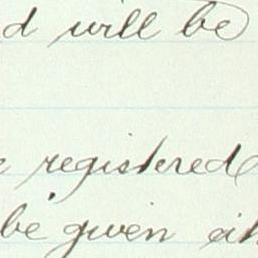 d will be
registered
be given